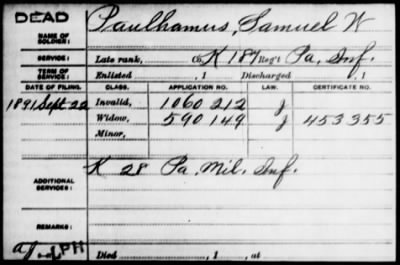 DEAD
NAME OF SOLDIER: Paulhamus, Samuel W
SERVICE: Late rank, Co. K 187 Reg't Pa. Inf.
TERM OF SERVICE: Enlisted , 1 Discharged , 1
DATE OF FILING. CLASS. APPLICATION NO. LAW. CERTIFICATE NO.
1891 Sept 22 Invalid, 1060 212 J
Widow, 590149 J 453355
Minor,
ADDITIONAL SERVICES: K 28 Pa. Mil. Inf.
REMARKS:
PH
Died , 1 , at